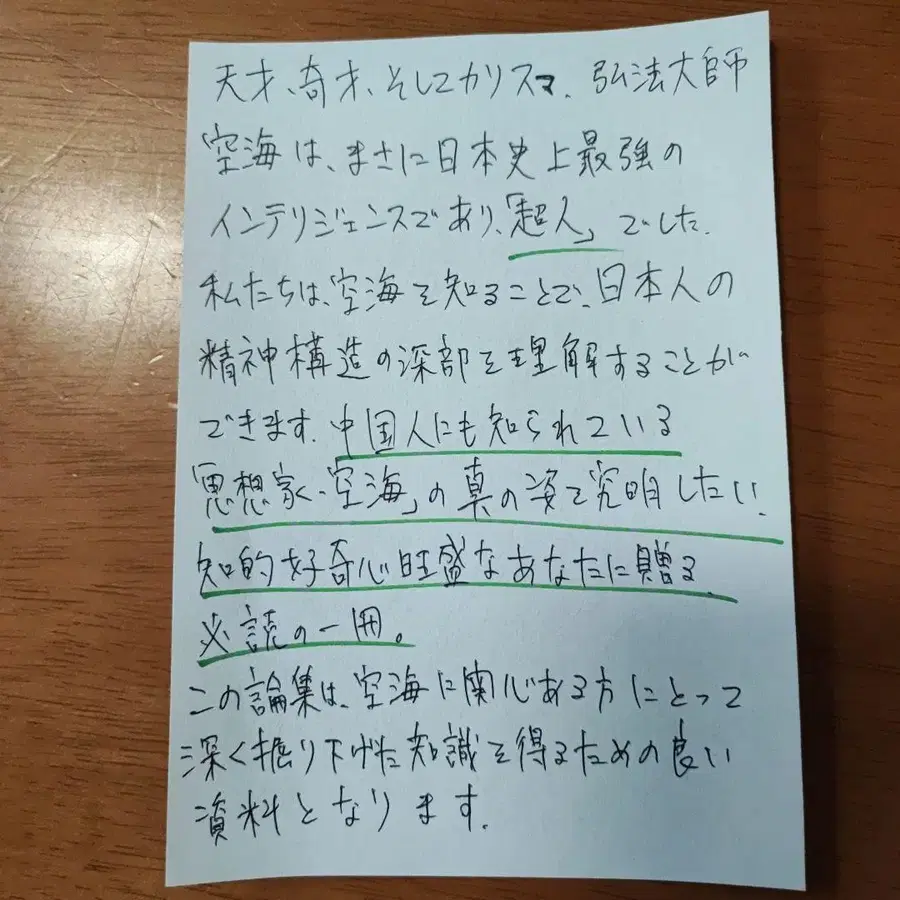 天才、奇才、そしてカリスマ、弘法大師
空海は、まさに日本史上最強の
インテリジェンスであり、「超人」でした。
私たちは、空海を知ることで、日本人の
精神構造の深部を理解することが
できます。中国人にも知られている
「思想家・空海」の真の姿を究明したい
知的好奇心旺盛なあなたに贈る
必読の一冊。
この論集は、空海に関心ある方にとって
深く掘り下げた知識を得るための良い
資料となります。